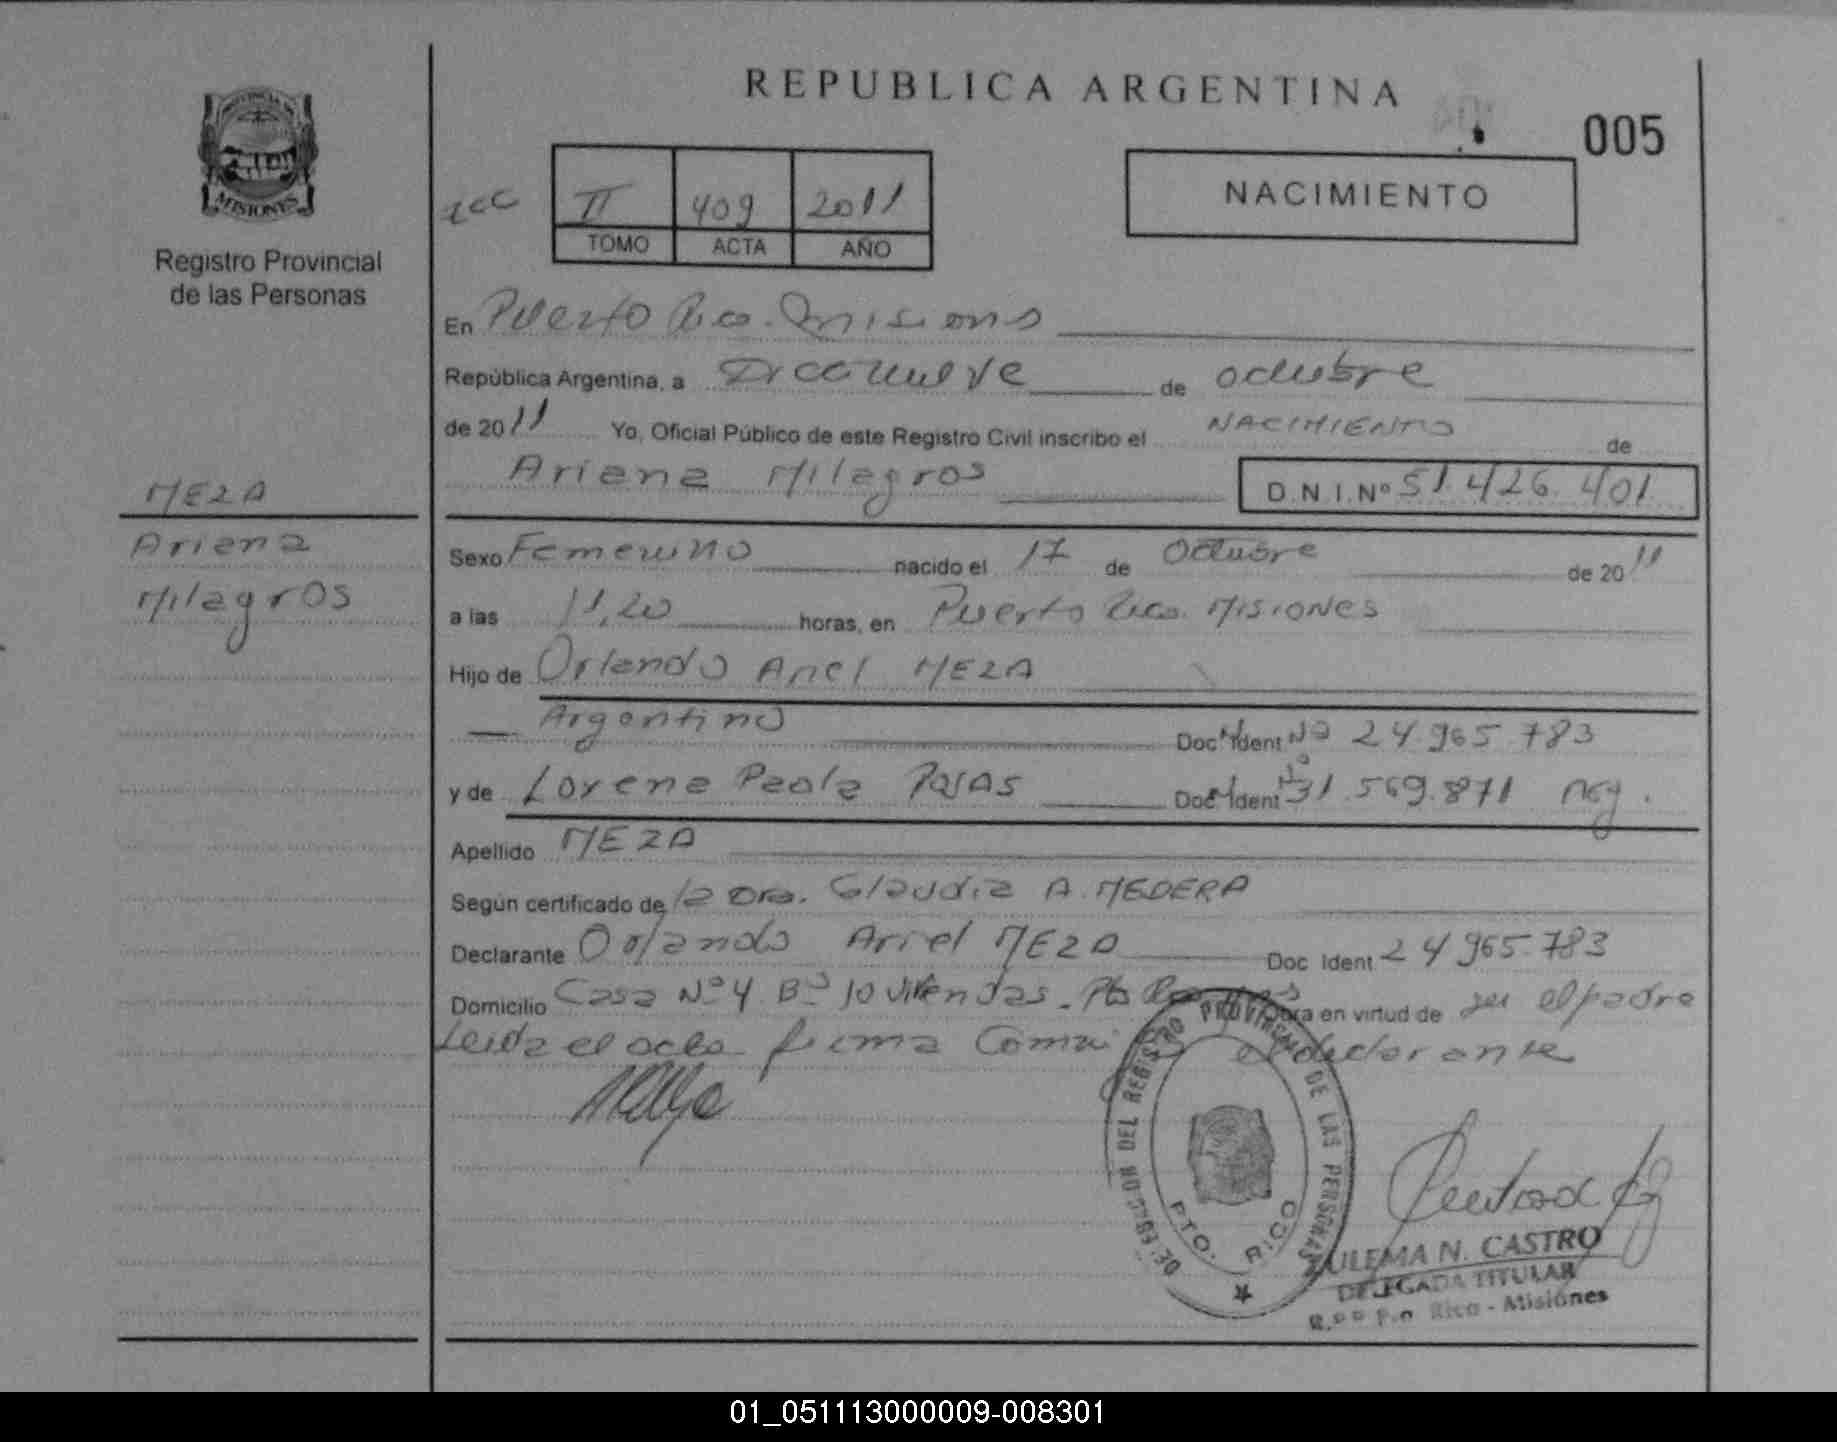 REPUBLICA ARGENTINA
005
NACIMIENTO
II 409 2011
TOMO ACTA AÑO
MISIONES
Registro Provincial
de las Personas
MEZA
Ariana
Milagros
En Puerto Rico. Misiones
República Argentina, a Diecinueve de octubre
de 2011 Yo, Oficial Público de este Registro Civil inscribo el NACIMIENTO de
Ariana Milagros D.N.I.Nº 51.426.401
Sexo Femenino nacido el 17 de Octubre de 2011
a las 11,20 horas, en Puerto Rico. Misiones
Hijo de Orlando Ariel MEZA
Argentino Doc. Ident Nº 24.965.783
y de Lorena Paola Doc. Ident Nº 31.569.871 Arg.
Apellido MEZA
Según certificado de la Dra. Claudia A. MEDERA
Declarante Orlando Ariel MEZA Doc Ident 24.965.783
Domicilio Casa Nº 4 Bº 10 viviendas. Pto Rico obra en virtud de ser el padre
Leida el acta firma el declarante
DEL REGISTRO PROVINCIAL DE LAS PERSONAS
PTO. RICO
ULEMA N. CASTRO
DELEGADA TITULAR
Rico - Misiones
01_051113000009-008301